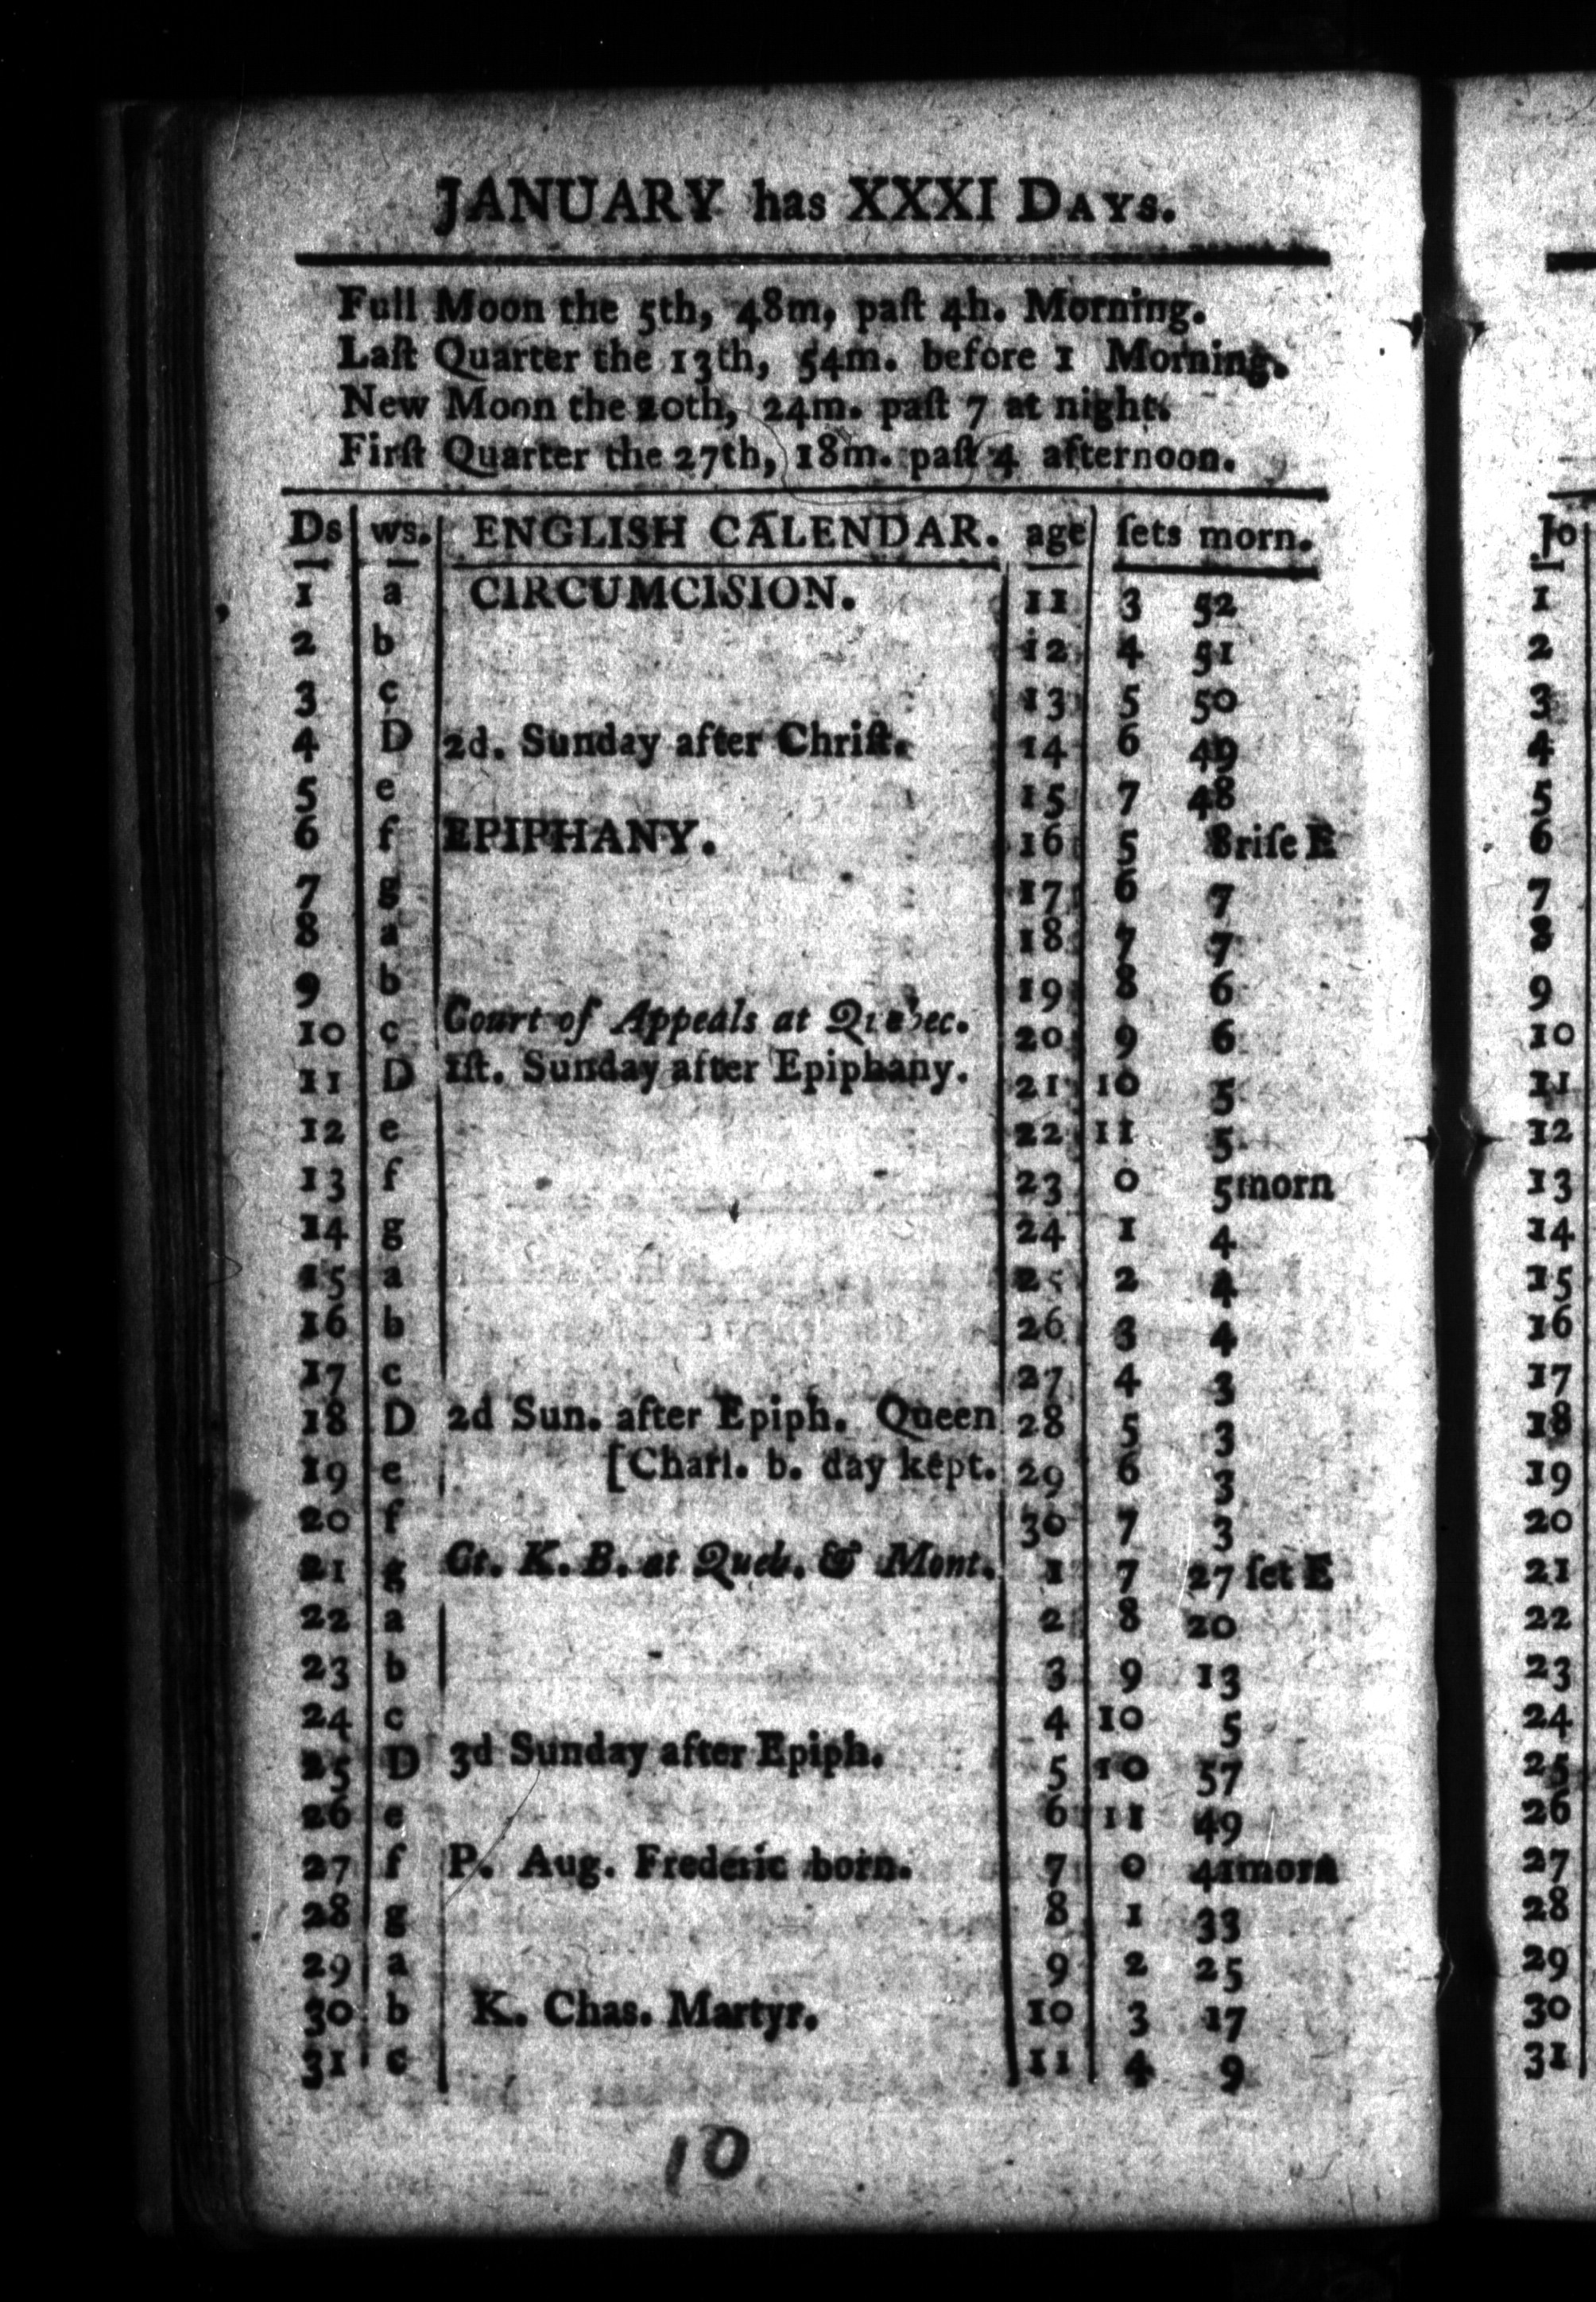 JANUARY has XXXI DAYS.
Full Moon the 5th, 48m, paſt 4h. Morning.
Laſt Quarter the 13th, 54m. before 1 Morning.
New Moon the 20th, 24m. paſt 7 at night.
Firſt Quarter the 27th, 18m. paſt 4 afternoon.
Ds ws. ENGLISH CALENDAR. age ſets morn.
1 a CIRCUMCISION. 11 3 52
2 b 12 4 51
3 c 13 5 50
4 D 2d. Sunday after Chriſt. 14 6 49
5 e 15 7 48
6 f EPIPHANY. 16 5 8 riſe E
7 g 17 6 7
8 a 18 7 7
9 b 19 8 6
10 c Court of Appeals at Quebec. 20 9 6
11 D 1ſt. Sunday after Epiphany. 21 10 5
12 e 22 11 5
13 f 23 0 5 morn
14 g 24 1 4
15 a 25 2 4
16 b 26 3 4
17 c 27 4 3
18 D 2d Sun. after Epiph. Queen 28 5 3
19 e [Charl. b. day kept. 29 6 3
20 f 30 7 3
21 g Ct. K. B. at Queb. & Mont. 1 7 27 ſet E
22 a 2 8 20
23 b 3 9 13
24 c 4 10 5
25 D 3d Sunday after Epiph. 5 10 57
26 e 6 11 49
27 f P. Aug. Frederic born. 7 0 41 morn
28 g 8 1 33
29 a 9 2 25
30 b K. Chas. Martyr. 10 3 17
31 c 11 4 9
10
Jo
1
2
3
4
5
6
7
8
9
10
11
12
13
14
15
16
17
18
19
20
21
22
23
24
25
26
27
28
29
30
31